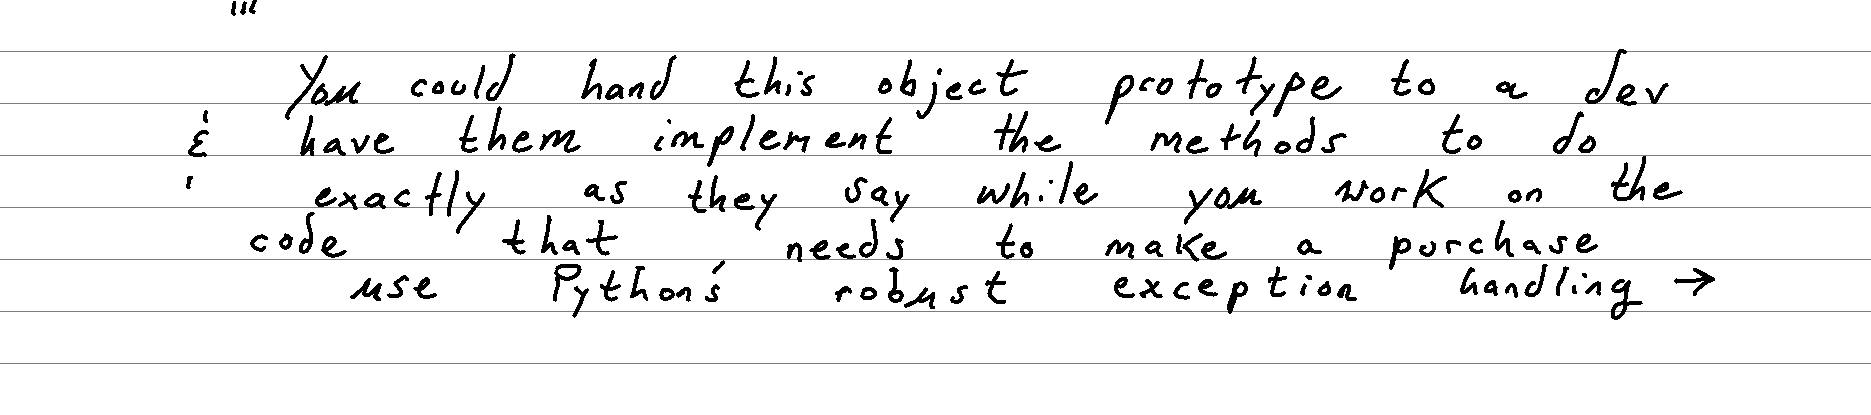 "'
You could hand this object prototype to a dev
& have them implement the methods to do
' exactly as they say while you work on the
code that needs to make a purchase
use Python's robust exception handling →